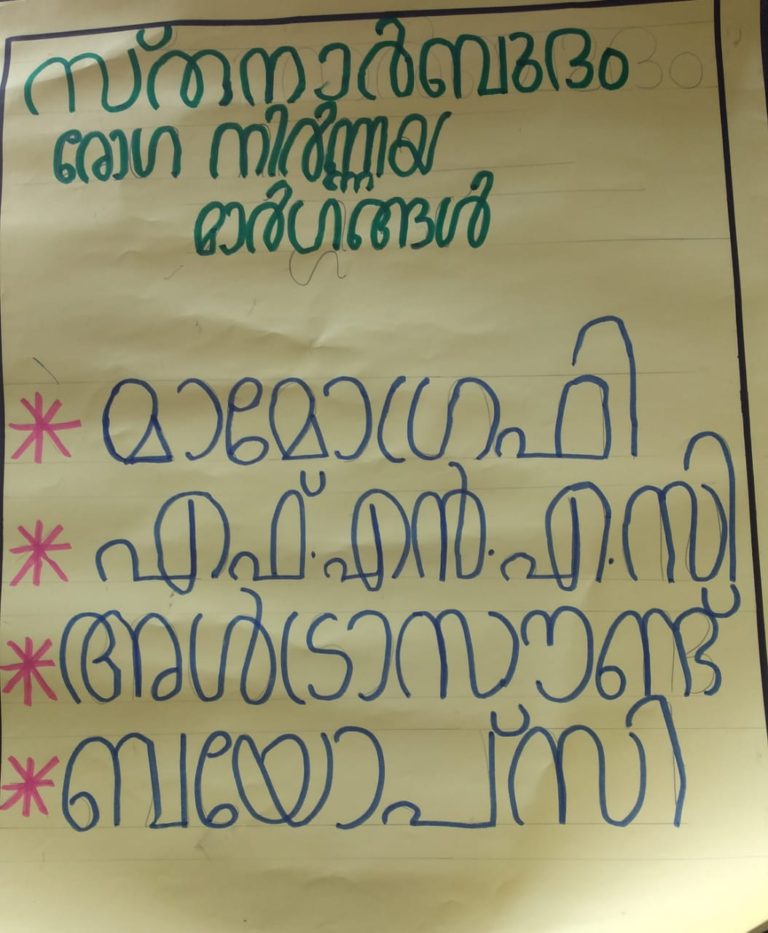 സ്തനാർബുദം
രോഗ നിർണ്ണയ
മാർഗങ്ങൾ
* മാമോഗ്രഫി
* എഫ്.എൻ.എ.സി
* അൾട്രാസൗണ്ട്
* ബയോപ്സി